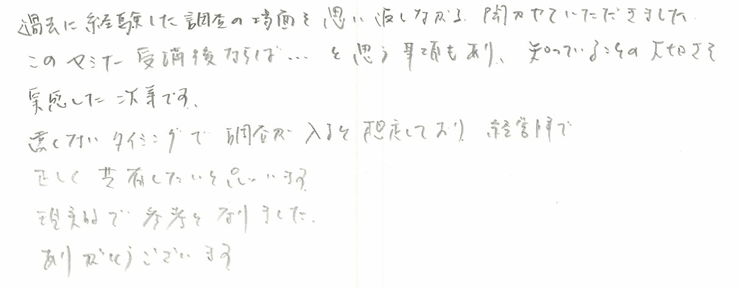 過去に経験した調査の場面を思い返しながら、聞かせていただきました。
このセミナー受講後ならば…と思う事項もあり、知っていることの大切さを
実感した次第です。
遠くないタイミングで調査が入ると想定しており、経営陣で
正しく共有したいと思います。
現実的で参考となりました。
ありがとうございます